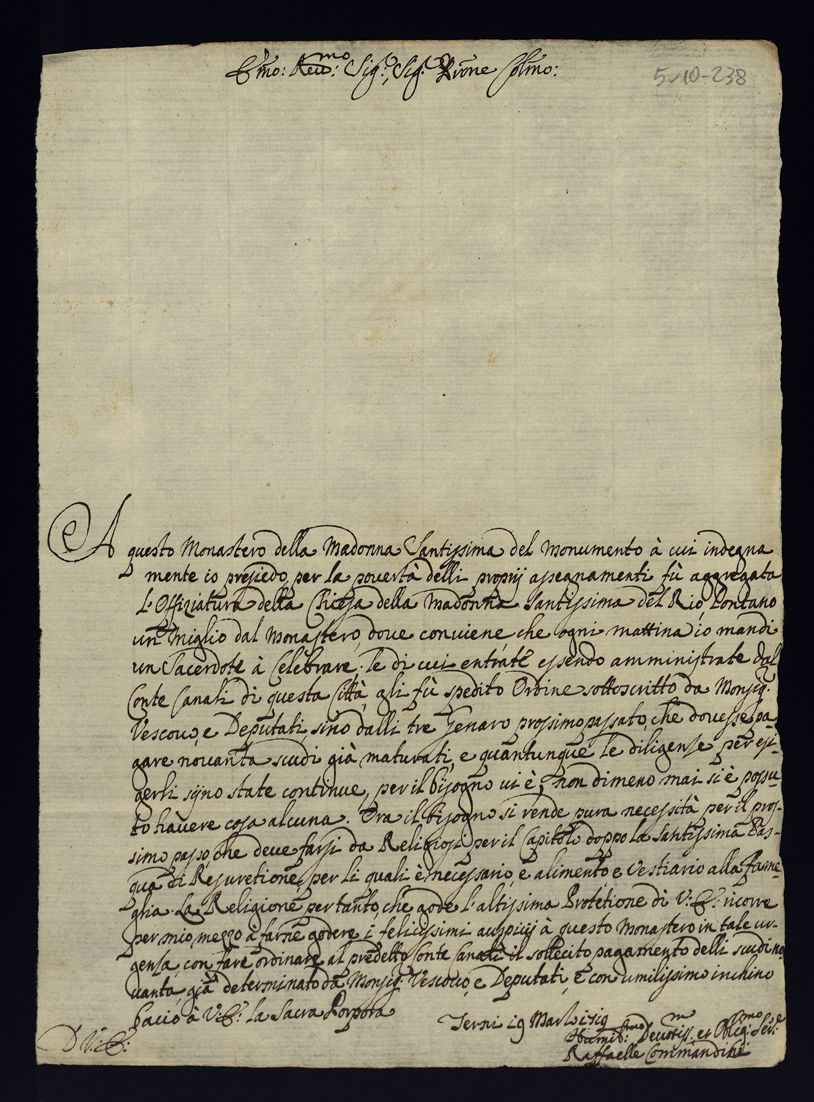 E͞mo: Reu͞mo: Sig:re, Sig:re P͞rone Col͞mo:
5-10-238
A questo Monastero della Madonna Santissima del Monumento à cui indegna
mente io presiedo, per la pouertà delli proprij assegnamenti fù aggregata
l'Offiziatura della Chiesa della Madonna Santissima del Rio, lontano
un miglio dal Monastero, doue conuiene che ogni mattina io mandi
un Sacerdote à Celebrare: le di cui entrate essendo amministrate dal
Conte Canali di questa Città, gli fù spedito Ordine sottoscritto da Monsig:r
Vescouo, e Deputati sino dalli tre Genaro prossimo passato, che douesse pa
gare nouanta scudi già maturati, e quantunque le diligenze per esi-
gerli siano state continue, per il bisogno ui è, non dimeno mai si è possu
to hauere cosa alcuna. Ora il bisogno si rende pura necessità per il pros-
simo passo, che deue farsi da Religiosi per il Capitolo doppo la Santissima Pas-
qua di Resuretione, per li quali è necessario, e alimento e Vestiario alla fame
glia. La Religione per tanto, che gode l'altissima Protetione di V: E͞: ricorre
per mio mezzo à farne godere i felicissimi auspicij à questo Monastero in tale ur-
genza, con fare ordinare al predetto Conte Canali il sollecito pagamento delli scudi no
uanta, già determinato da Monsig:r Vescouo, e Deputati, E con umilissimo inchino
bacio à V: E͞: la Sacra Porpora
Terni 19 Marzo 1719
D V: E͞:
Humil:mo Deuotis:mo et Oblig:mo Ser:e
Raffaelle Commandini